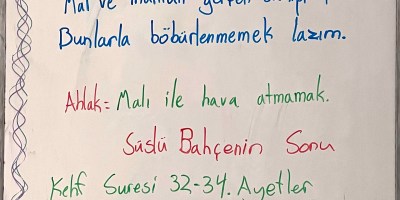 Mal ve
Bunlarla böbürlenmemek lazım.
Ahlak = Malı ile hava atmamak.
Süslü Bahçenin Sonu
Kehf Suresi 32-34. Ayetler